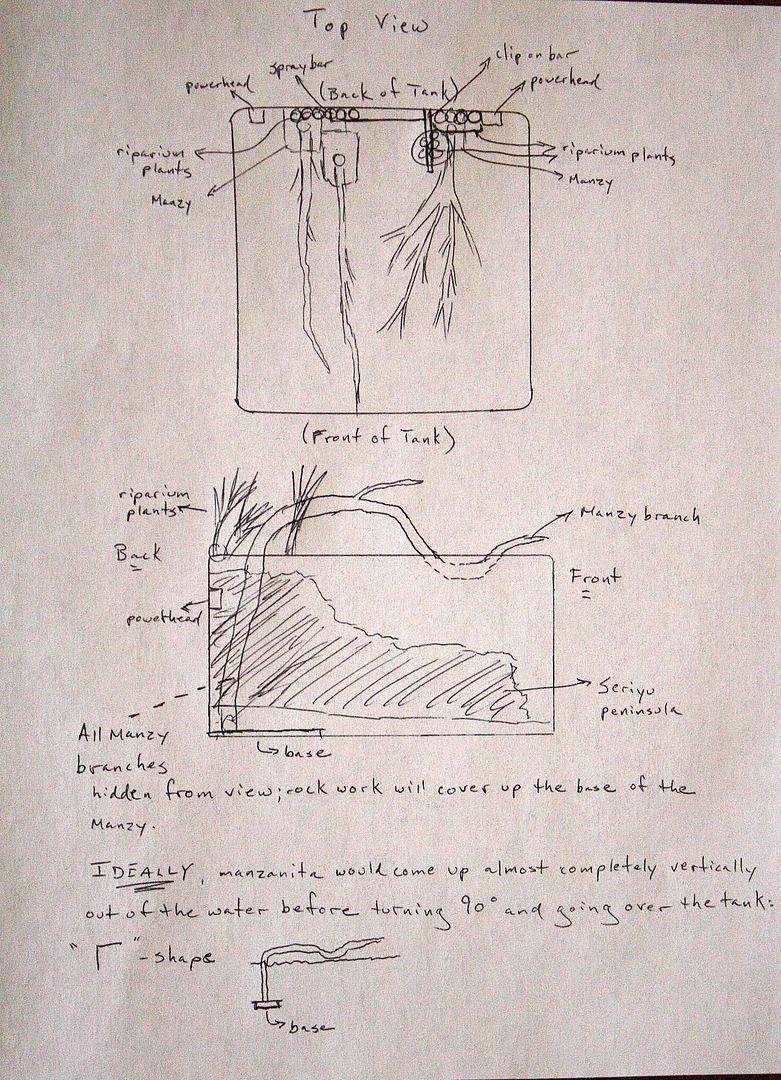 Top View
clip on bar
spraybar
powerhead
(Back of Tank)
powerhead
riparium
plants
riparium plants
Manzy
Manzy
(Front of Tank)
riparium
plants
Manzy branch
Back
Front
powerhead
Seriyu
peninsula
All Manzy
branches
base
hidden from view; rock work will cover up the base of the
Manzy.
IDEALLY, manzanita would come up almost completely vertically
out of the water before turning 90° and going over the tank:
"Γ"-shape
base